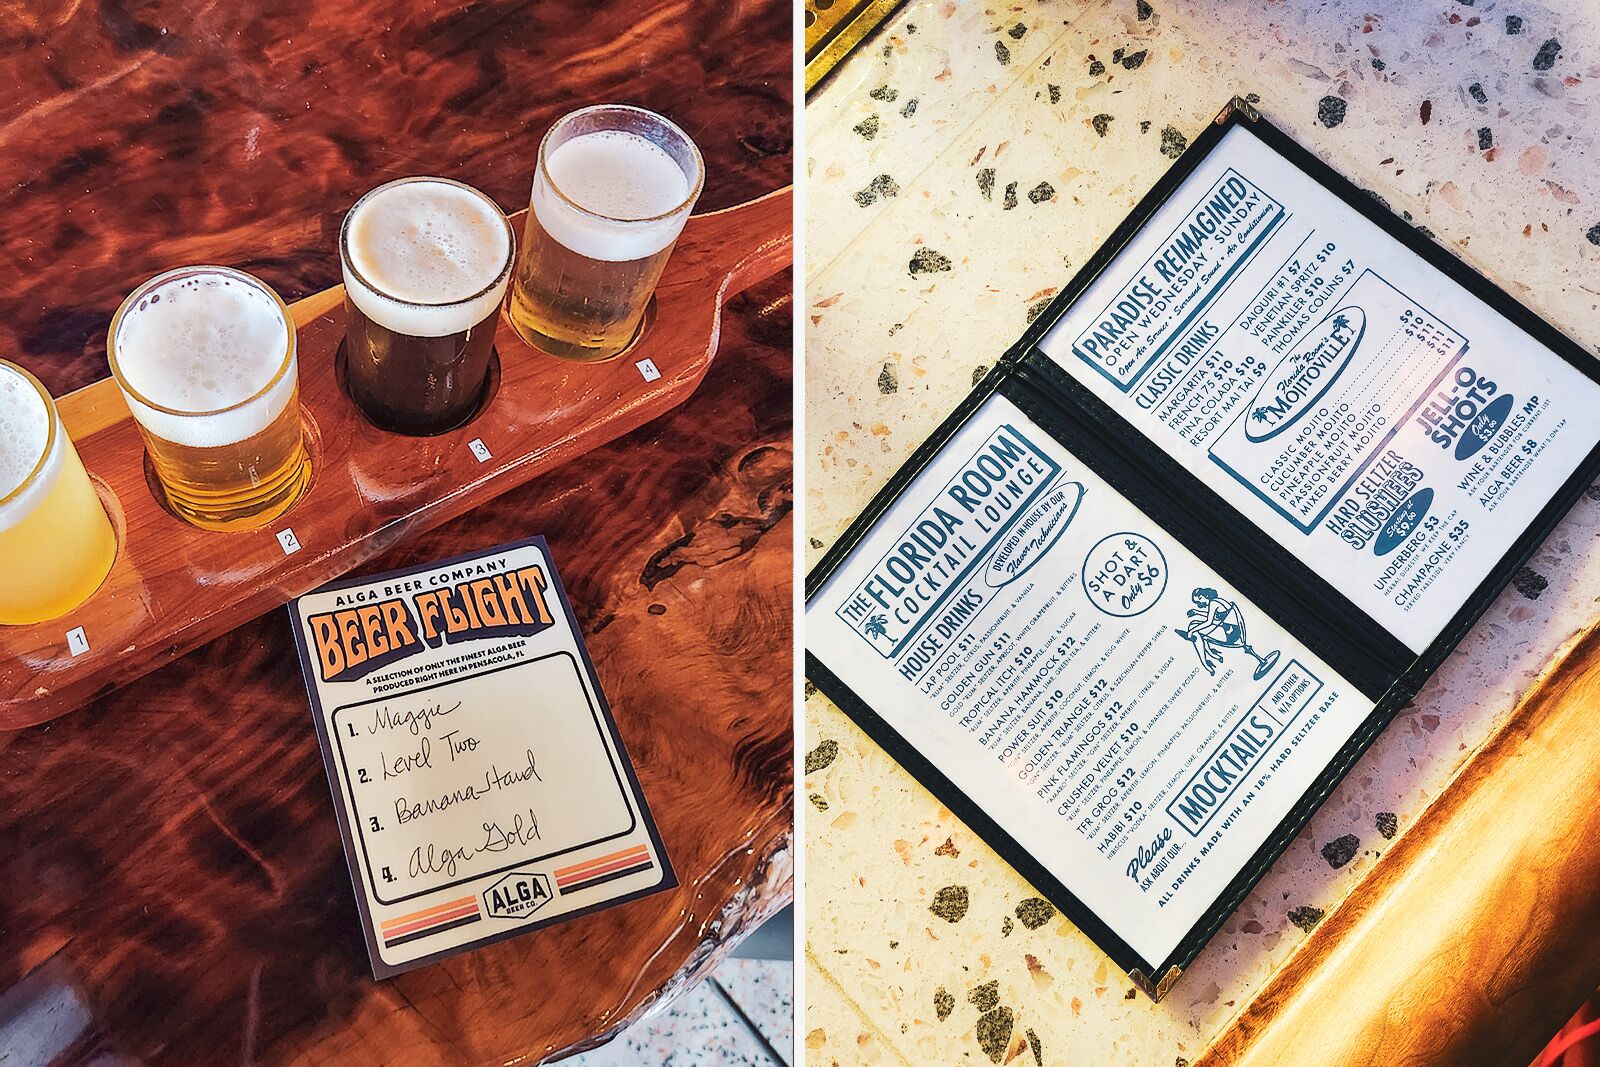 1
2
3
4
ALGA BEER COMPANY
BEER FLIGHT
A SELECTION OF ONLY THE FINEST ALGA BEER
PRODUCED RIGHT HERE IN PENSACOLA, FL
1. Maggie
2. Level Two
3. Banana Stand
4. Alga Gold
ALGA
BEER CO.
THE FLORIDA ROOM
COCKTAIL LOUNGE
HOUSE DRINKS
DEVELOPED IN-HOUSE BY OUR
Flavor Technicians
LAP POOL $11
"RUM" SELTZER, CITRUS, PASSIONFRUIT, & VANILLA
GOLDEN GUN $11
GOLD "RUM" SELTZER, APRICOT, WHITE GRAPEFRUIT, & BITTERS
TROPICAL ITCH $10
"RUM" SELTZER, APERITIF, PINEAPPLE, LIME, & SUGAR
BANANA HAMMOCK $12
"RUM" SELTZER, BANANA, LIME, GREEN TEA, & BITTERS
POWER SUIT $10
"GIN" SELTZER, APERITIF, COCONUT, LEMON, & EGG WHITE
GOLDEN TRIANGLE $12
"GIN" SELTZER, "RUM" SELTZER, CITRUS, & SZECHUAN PEPPER SHRUB
PINK FLAMINGOS $12
"AMARO" SELTZER, "GIN" SELTZER, APERITIF, CITRUS, & SUGAR
CRUSHED VELVET $10
"RUM" SELTZER, PINEAPPLE, LEMON, & JAPANESE SWEET POTATO
TFR GROG $12
"RUM" SELTZER, APERITIF, LEMON, PINEAPPLE, PASSIONFRUIT, & BITTERS
HABIBI $10
HIBISCUS "VODKA" SELTZER, LEMON, LIME, ORANGE, & BITTERS
SHOT &
A DART
Only $6
Please
ASK ABOUT OUR...
MOCKTAILS
AND OTHER
N/A OPTIONS
ALL DRINKS MADE WITH AN 18% HARD SELTZER BASE
PARADISE REIMAGINED
OPEN WEDNESDAY - SUNDAY
Open Air Service • Surround Sound • Air Conditioning
CLASSIC DRINKS
MARGARITA $11
FRENCH 75 $10
PINA COLADA $10
RESORT MAI TAI $9
DAIQUIRI #1 $7
VENETIAN SPRITZ $10
PAINKILLER $10
THOMAS COLLINS $7
The
Florida Room's
MOJITOVILLE
CLASSIC MOJITO $9
CUCUMBER MOJITO $10
PINEAPPLE MOJITO $11
PASSIONFRUIT MOJITO $11
MIXED BERRY MOJITO $11
HARD SELTZER
SLUSHEES
Starting at
$9.00
JELL-O
SHOTS
Only
$3.00
UNDERBERG $3
HERBAL DIGESTIF, WE KEEP THE CAP
CHAMPAGNE $35
SERVED TABLESIDE, VERY FANCY.
WINE & BUBBLES MP
ASK YOUR BARTENDER FOR CURRENT LIST
ALGA BEER $8
ASK YOUR BARTENDER WHAT'S ON TAP